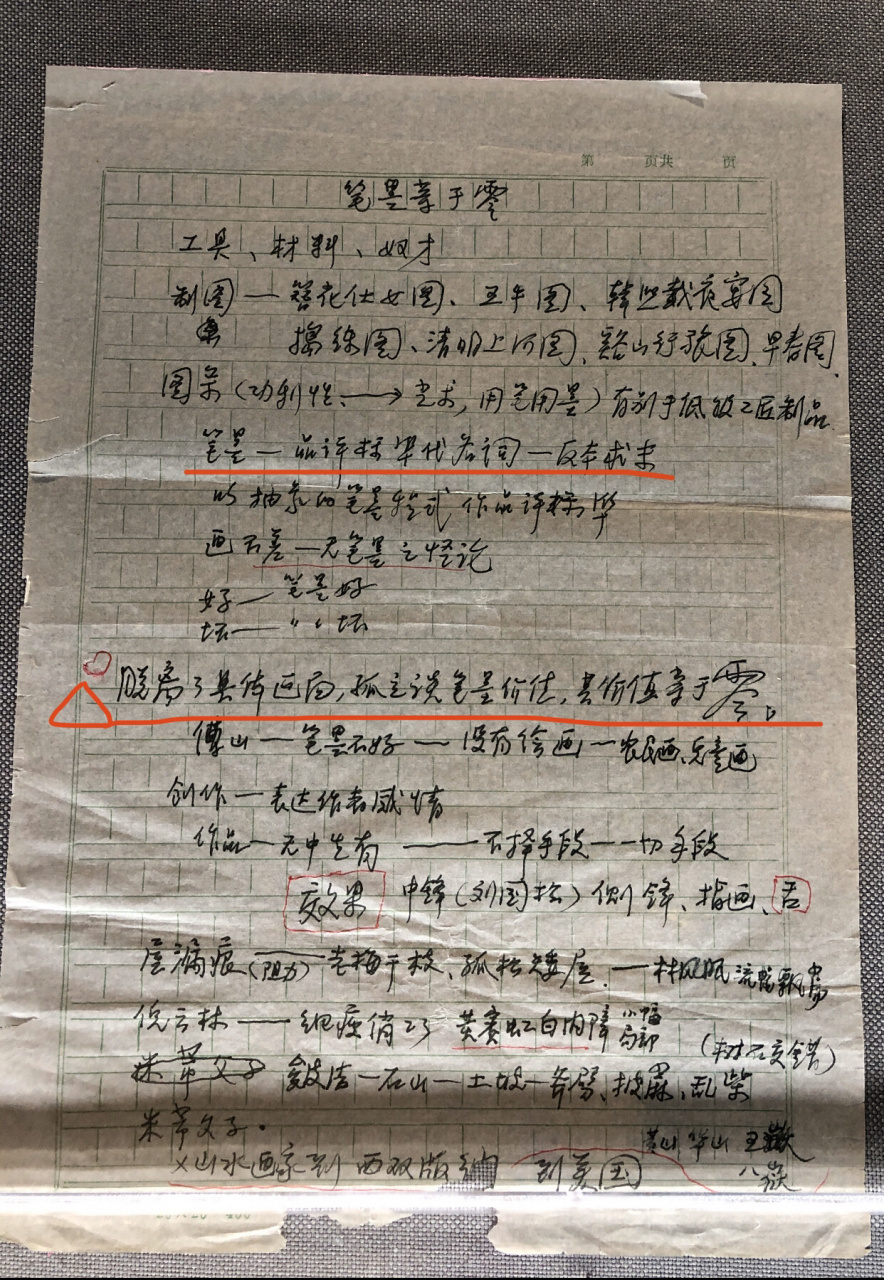 第 页共 页
笔墨等于零
工具、材料、奴才
制图一簪花仕女图、五牛图、韩熙载夜宴图
捣练图、清明上河图、谿山行旅图、早春图、
图案(功利性 → 艺术,用笔用墨)有别于低级工匠制品
笔墨一品评标准代名词一反本求末
以抽象的笔墨程式作品评标准
画不差一无笔墨之怪论
好一笔墨好
坏一〃〃坏
脱离了具体画面,孤立谈笔墨价值,其价值等于零。
傅山一笔墨不好一没有绘画一农民画、儿童画
创作一表达作者感情
作品一无中生有 一不择手段一一切手段
效果 中锋(刘国松)侧锋、指画、舌
屋漏痕(阻力)老梅干枝、孤松矮屋.一林风眠流
倪云林一细瘦俏 黄宾虹白内障 小幅 局部 (树石交错)
米芾父子 皴法一石山一土坡一斧劈、披麻、乱柴
米芾父子.
黄山华山 五嶽
×山水画家到西双版纳 到美国 八嶽